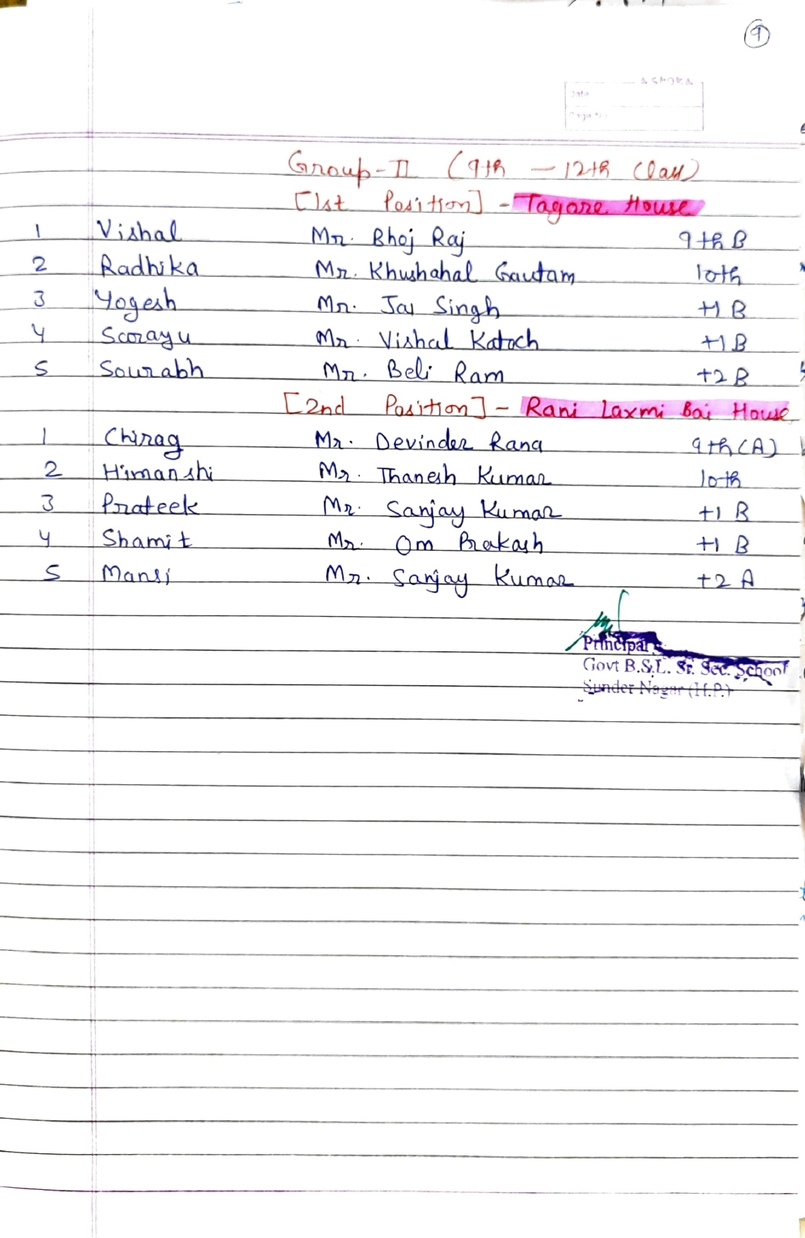 9
ASHOKA
Date
Page No.
Group-II (9th — 12th Class)
[1st Position] - Tagore House
1 Vishal Mr. Bhoj Raj 9th B
2 Radhika Mr. Khushahal Gautam 10th
3 Yogesh Mr. Jai Singh +1 B
4 Scorayu Mr. Vishal Katoch +1 B
5 Sourabh Mr. Beli Ram +2 B
[2nd Position] - Rani Laxmi Bai House
1 Chirag Mr. Devinder Rana 9th (A)
2 Himanshi Mr. Thanesh Kumar 10th
3 Prateek Mr. Sanjay Kumar +1 B
4 Shamit Mr. Om Prakash +1 B
5 Mansi Mr. Sanjay Kumar +2 A
Principal
Govt B.S.L. Sr. Sec. School
Sunder Nagar (H.P.)